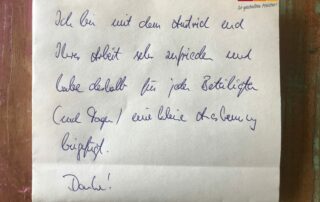 Ich bin mit dem Antrieb und
Ihrer Arbeit sehr zufrieden und
habe deshalb für jeden Beteiligten
eine kleine
beigefügt.
Danke!